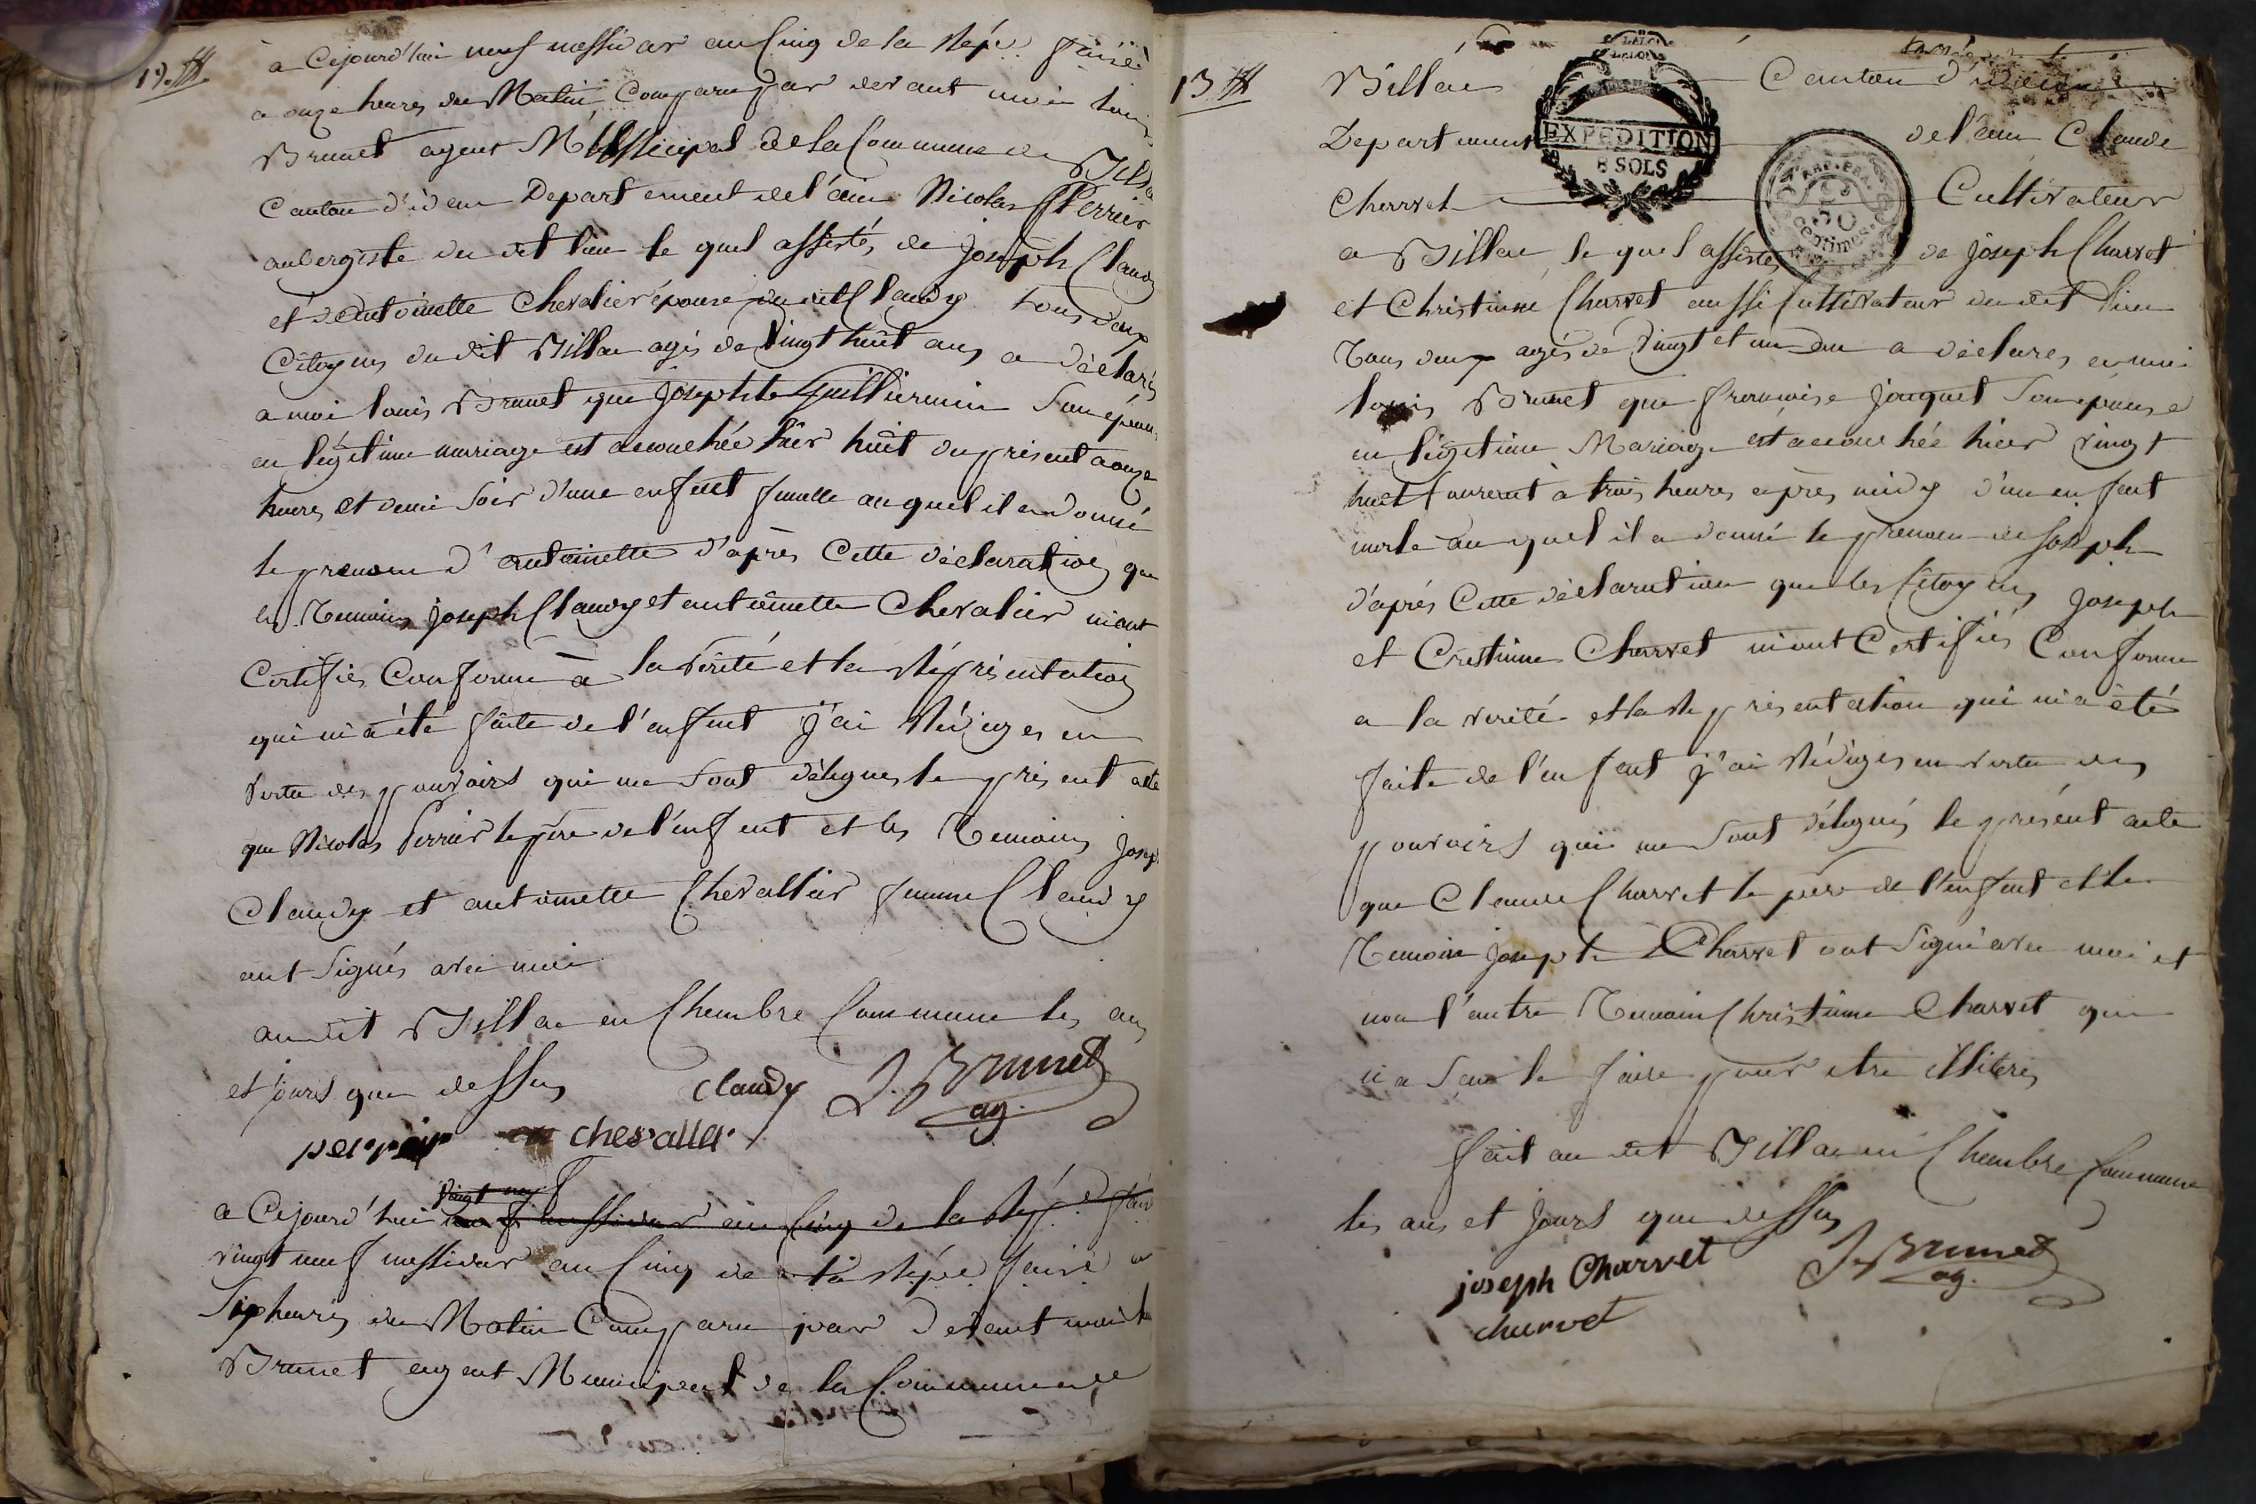 19
à Cejourd'hui neuf messidor an Cinq de la Rép.
a onze heures du Matin Comparu par devant moi louis
Brunet agent Municipal de la Commune de Villar
Canton d'idem Departement de l'ain Nicolas Perrier
aubergiste du dit lieu le quel assistés de joseph Claudy
et d'antoinette Chevalier épouse du dit Claudy tous deux
Citoyens du dit Villar agés de vingt huit ans a déclarés
a moi louis Brunet que josephte Guilliermin Son épouse
en légitime mariage est acouchée hier huit du présent a onze
heures et demi Soir d'une enfent femelle au quel il a donné
le prenom d'antoinette d'après Cette déclaration que
les Temoins joseph Claudy et antoinette Chevalier m'ont
Certifiés Conforme à la vérité et la Représentation
qui m'a été faite de l'enfent j'ai Rédiges en
vertu des pouvoirs qui me Sont délegues le présent acte
que Nicolas Perrier le père de l'enfent et les Temoins joseph
Claudy et antoinette Chevallier femme Claudy
ont Signés avec moi
au dit Villar en Chembre Commune les ans
et jours que dessus Claudy L. Brunet
ag.
perrier chevalier
vingt neuf
a Cejourd'hui neuf messidor an Cinq de la Rép.
vingt neuf messidor an Cinq de la Répe a
Six heures du Matin Comparu par devant moi
Brunet agent Municipal de la Commune de
13
Villar Canton d'idem
Departement de l'ain Claude
Charvet Cultivateur
EXPEDITION
8 SOLS
50
Centimes
a Villar le quel assistés de joseph Charvet
et Christinne Charvet aussi Cultivateur du dit lieu
Tous deux agés de vingt et un an a déclares a moi
louis Brunet que franceoise jouquet Son épouse
en légitime Mariage est acouchée hier vingt
huit Courent à trois heures après midy d'un enfent
male au quel il a donné le prenom de joseph
d'après Cette déclaration que les Citoyens joseph
et Cristinne Charvet m'ont Certifiés Conforme
a la verité et la Représentation qui m'a été
faite de l'enfent j'ai Rédiges en vertu des
pouvoirs qui me Sont délegués le présent acte
que Claude Charvet le père de l'enfent et le
Temoin joseph Charvet ont Signé avec moi et
non l'autre Temoin Christinne Charvet que
n'a Seu le faire pour etre illiterés
fait au dit Villar en Chembre Commune
les ans et jours que dessus
joseph Charvet L. Brunet
ag.
charvet